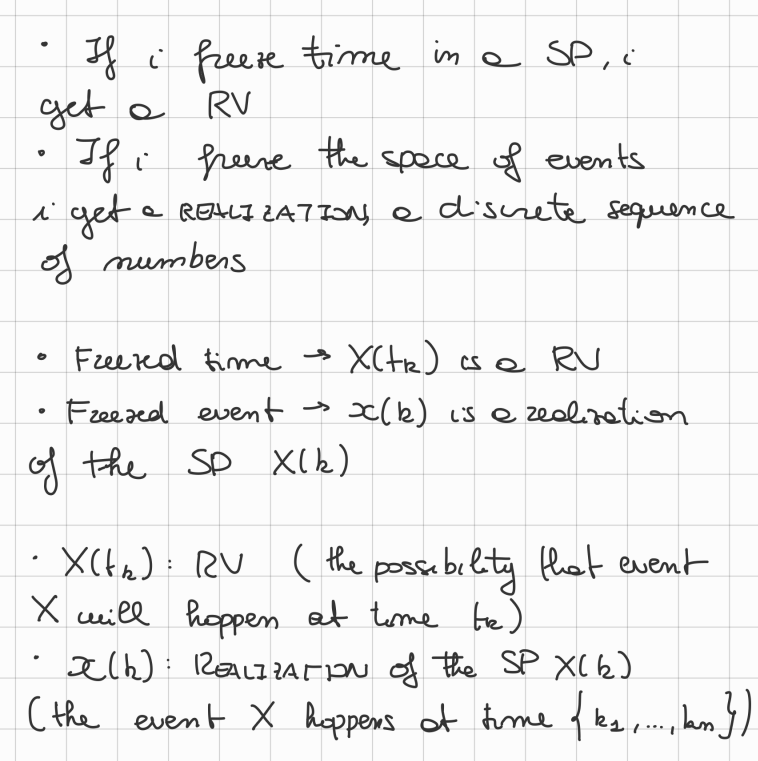 · If i freeze time in a SP, i
get a RV
· If i freeze the space of events
i get a REALIZATION, a discrete sequence
of numbers
• Freezed time → X(tk) is a RV
• Freezed event → x(k) is a realization
of the SP X(k)
· X(tk): RV (the possibility that event
X will happen at time tk)
· x(k): REALIZATION of the SP X(k)
(the event X happens at time {k1,...,kn})